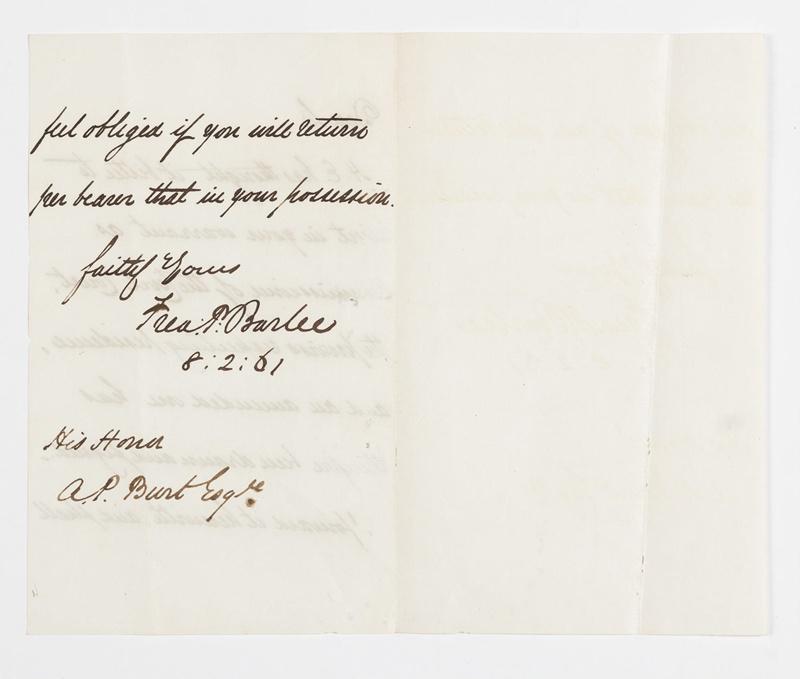 feel obliged if you will return
per bearer that in your possession.
faithf Yours
Fred. P. Barlee
8:2:61
His Honor
A. P. Burt Esqre